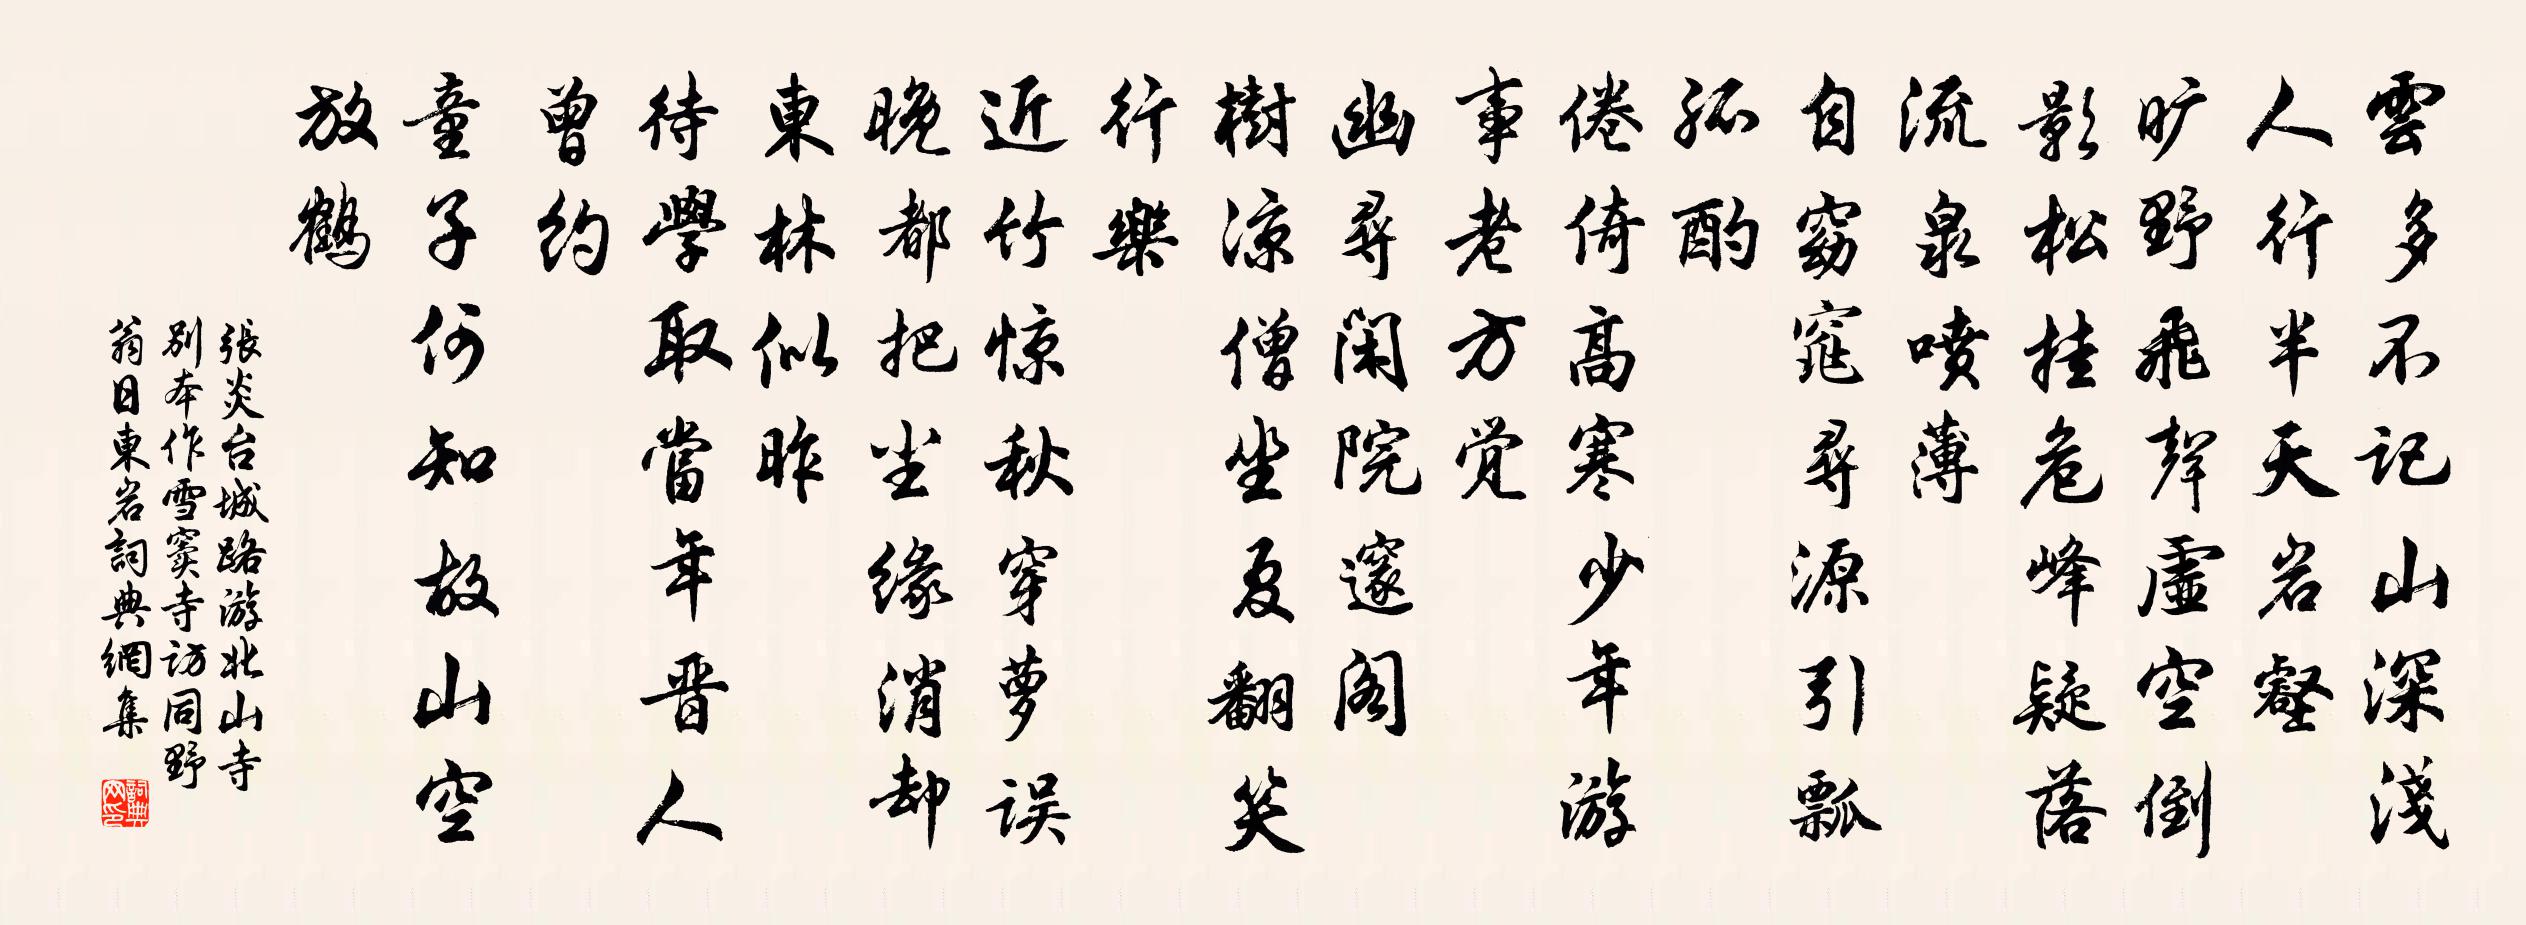 雲多不记山深淺
人行半天岩壑
旷野飛聲虛空倒
影松挂危峰疑落
流泉噴薄
自窈窕尋源引瓢
孤酌
倦倚高寒少年游
事老方觉
幽尋閑院邃阁
樹涼僧坐夏翻笑
行樂
近竹惊秋穿萝误
晚都把尘缘消却
東林似昨
待學取當年晋人
曾约
童子何知故山空
放鶴
張炎台城路游北山寺
别本作雪窦寺访同野
翁日東岩詞典網集
詞典
网印